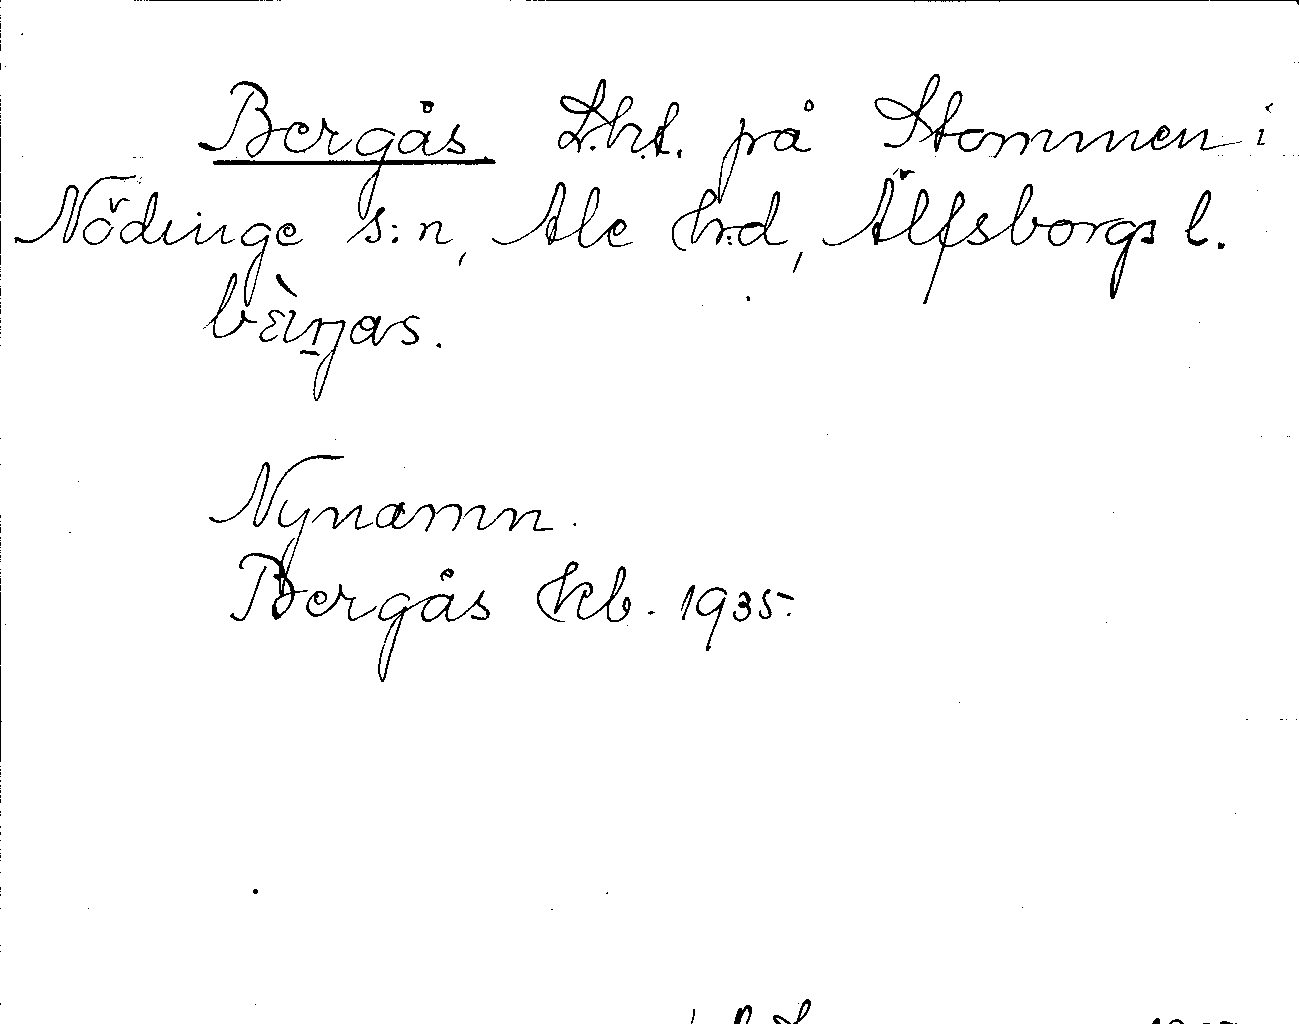 Bergås. Lht. på Stommen i
Nödinge s:n, Ale h:d, Älfsborgs l.
Nynamn.
Bergås kb. 1935.